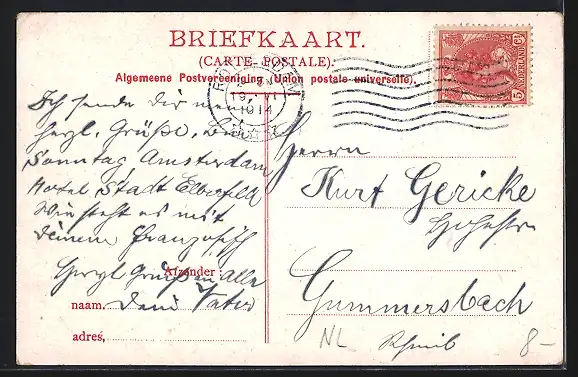 BRIEFKAART.
(CARTE-POSTALE).
Algemeene Postvereeniging (Union postale universelle).
5 NEDERLAND 5
19. VI
1914
Ich sende Dir
herzl. Grüße, bin
Sonntag Amsterdam
Hotel Stadt Elberfeld
Wie steht es mit
Deinem Französisch
Herzl Gruß an Alle
Afzender:
naam, Dein Vater
adres,
Herrn
Kurt Gericke
Gummersbach
NL
Rheinl
8-